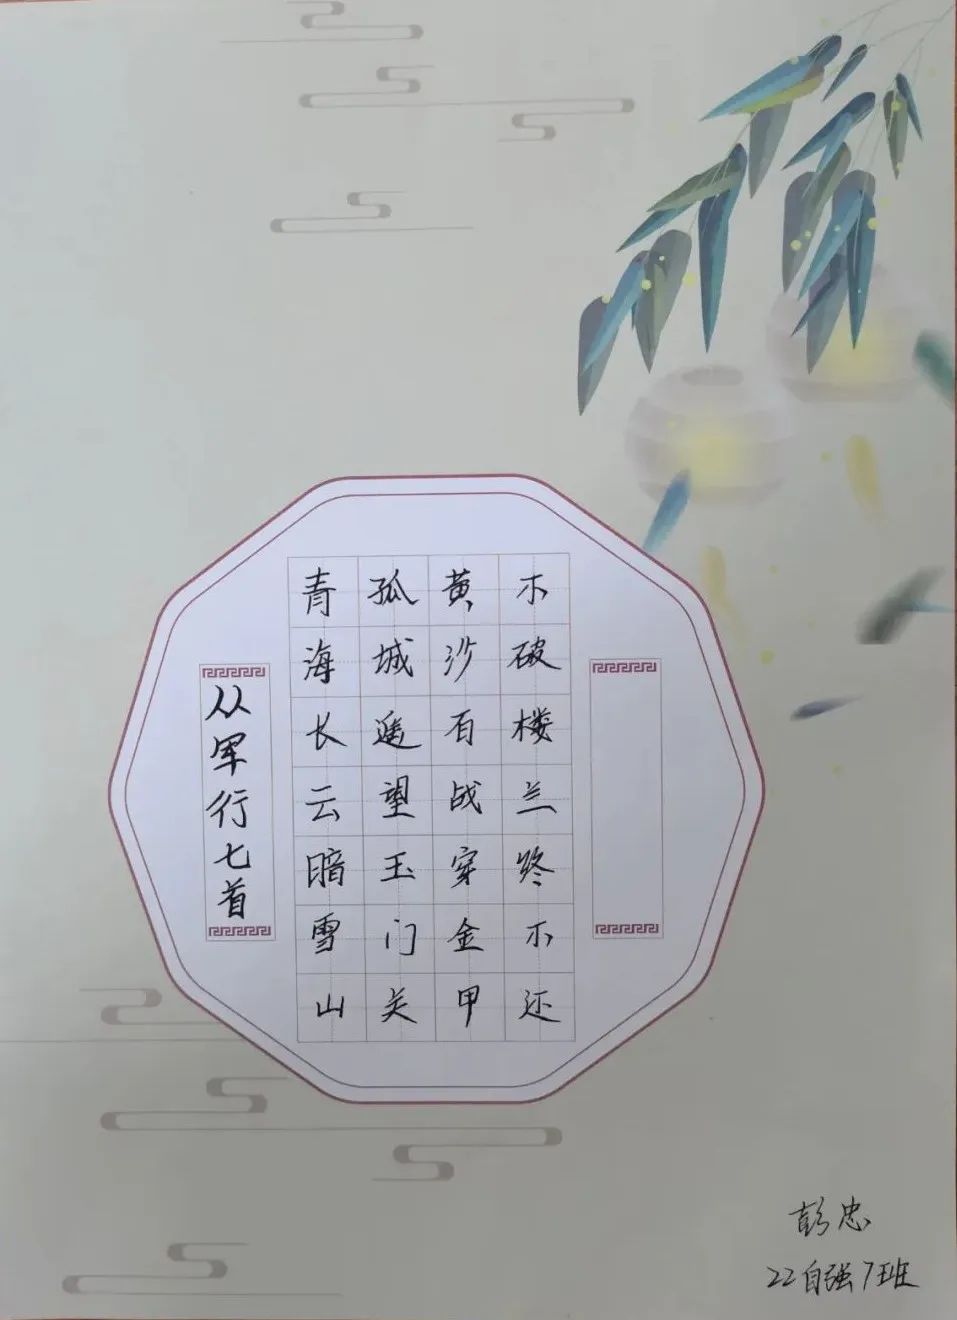 从军行七首
青海长云暗雪山
孤城遥望玉门关
黄沙百战穿金甲
不破楼兰终不还
彭忠
22自强7班